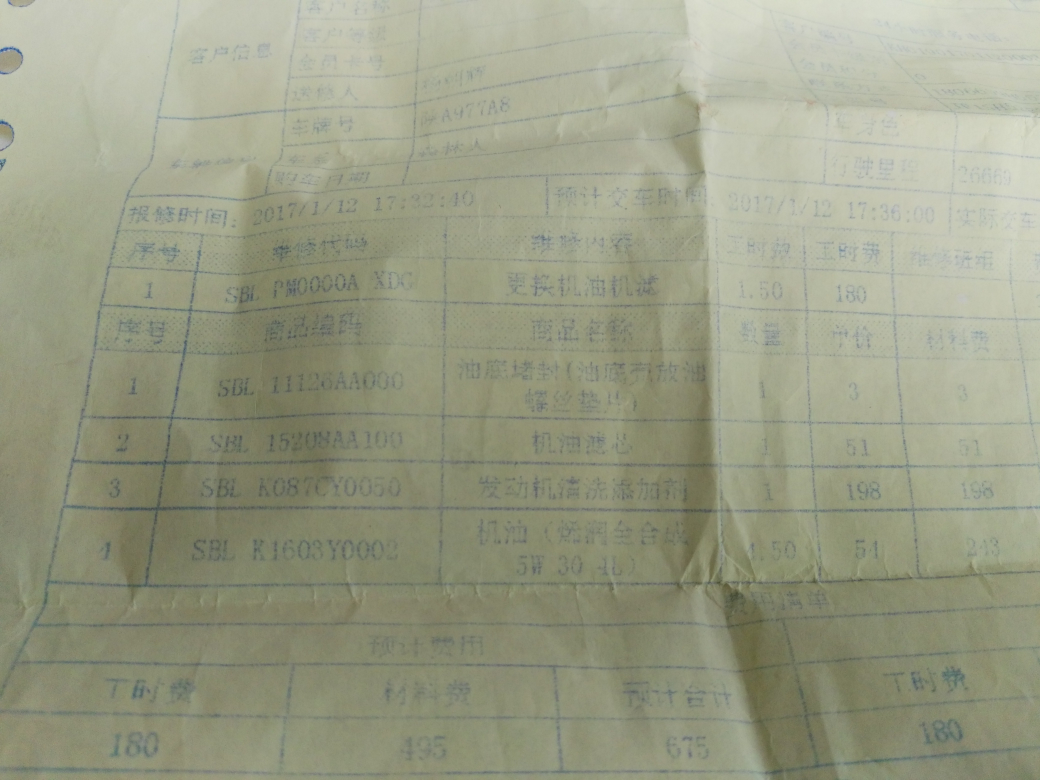 客户名称
客户等级
客户信息
会员卡号
送修人
车牌号 A977A8
森林人
车身色
购车日期
行驶里程 26669
报修时间: 2017/1/12 17:32:40 预计交车时间: 2017/1/12 17:36:00 实际交车
序号 维修代码 维修内容 工时数 工时费 维修班组
1 SBL PM0000A XDG 更换机油机滤 1.50 180
序号 商品编码 商品名称 数量 单价 材料费
1 SBL 11126AA000 油底堵封(油底壳放油螺丝垫片) 1 3 3
2 SBL 15208AA100 机油滤芯 1 51 51
3 SBL K087CY0050 发动机清洗添加剂 1 198 198
4 SBL K1603Y0002 机油(燃润全合成 5W 30 4L) 4.50 54 243
费用清单
预计费用
工时费 材料费 预计合计 工时费
180 495 675 180